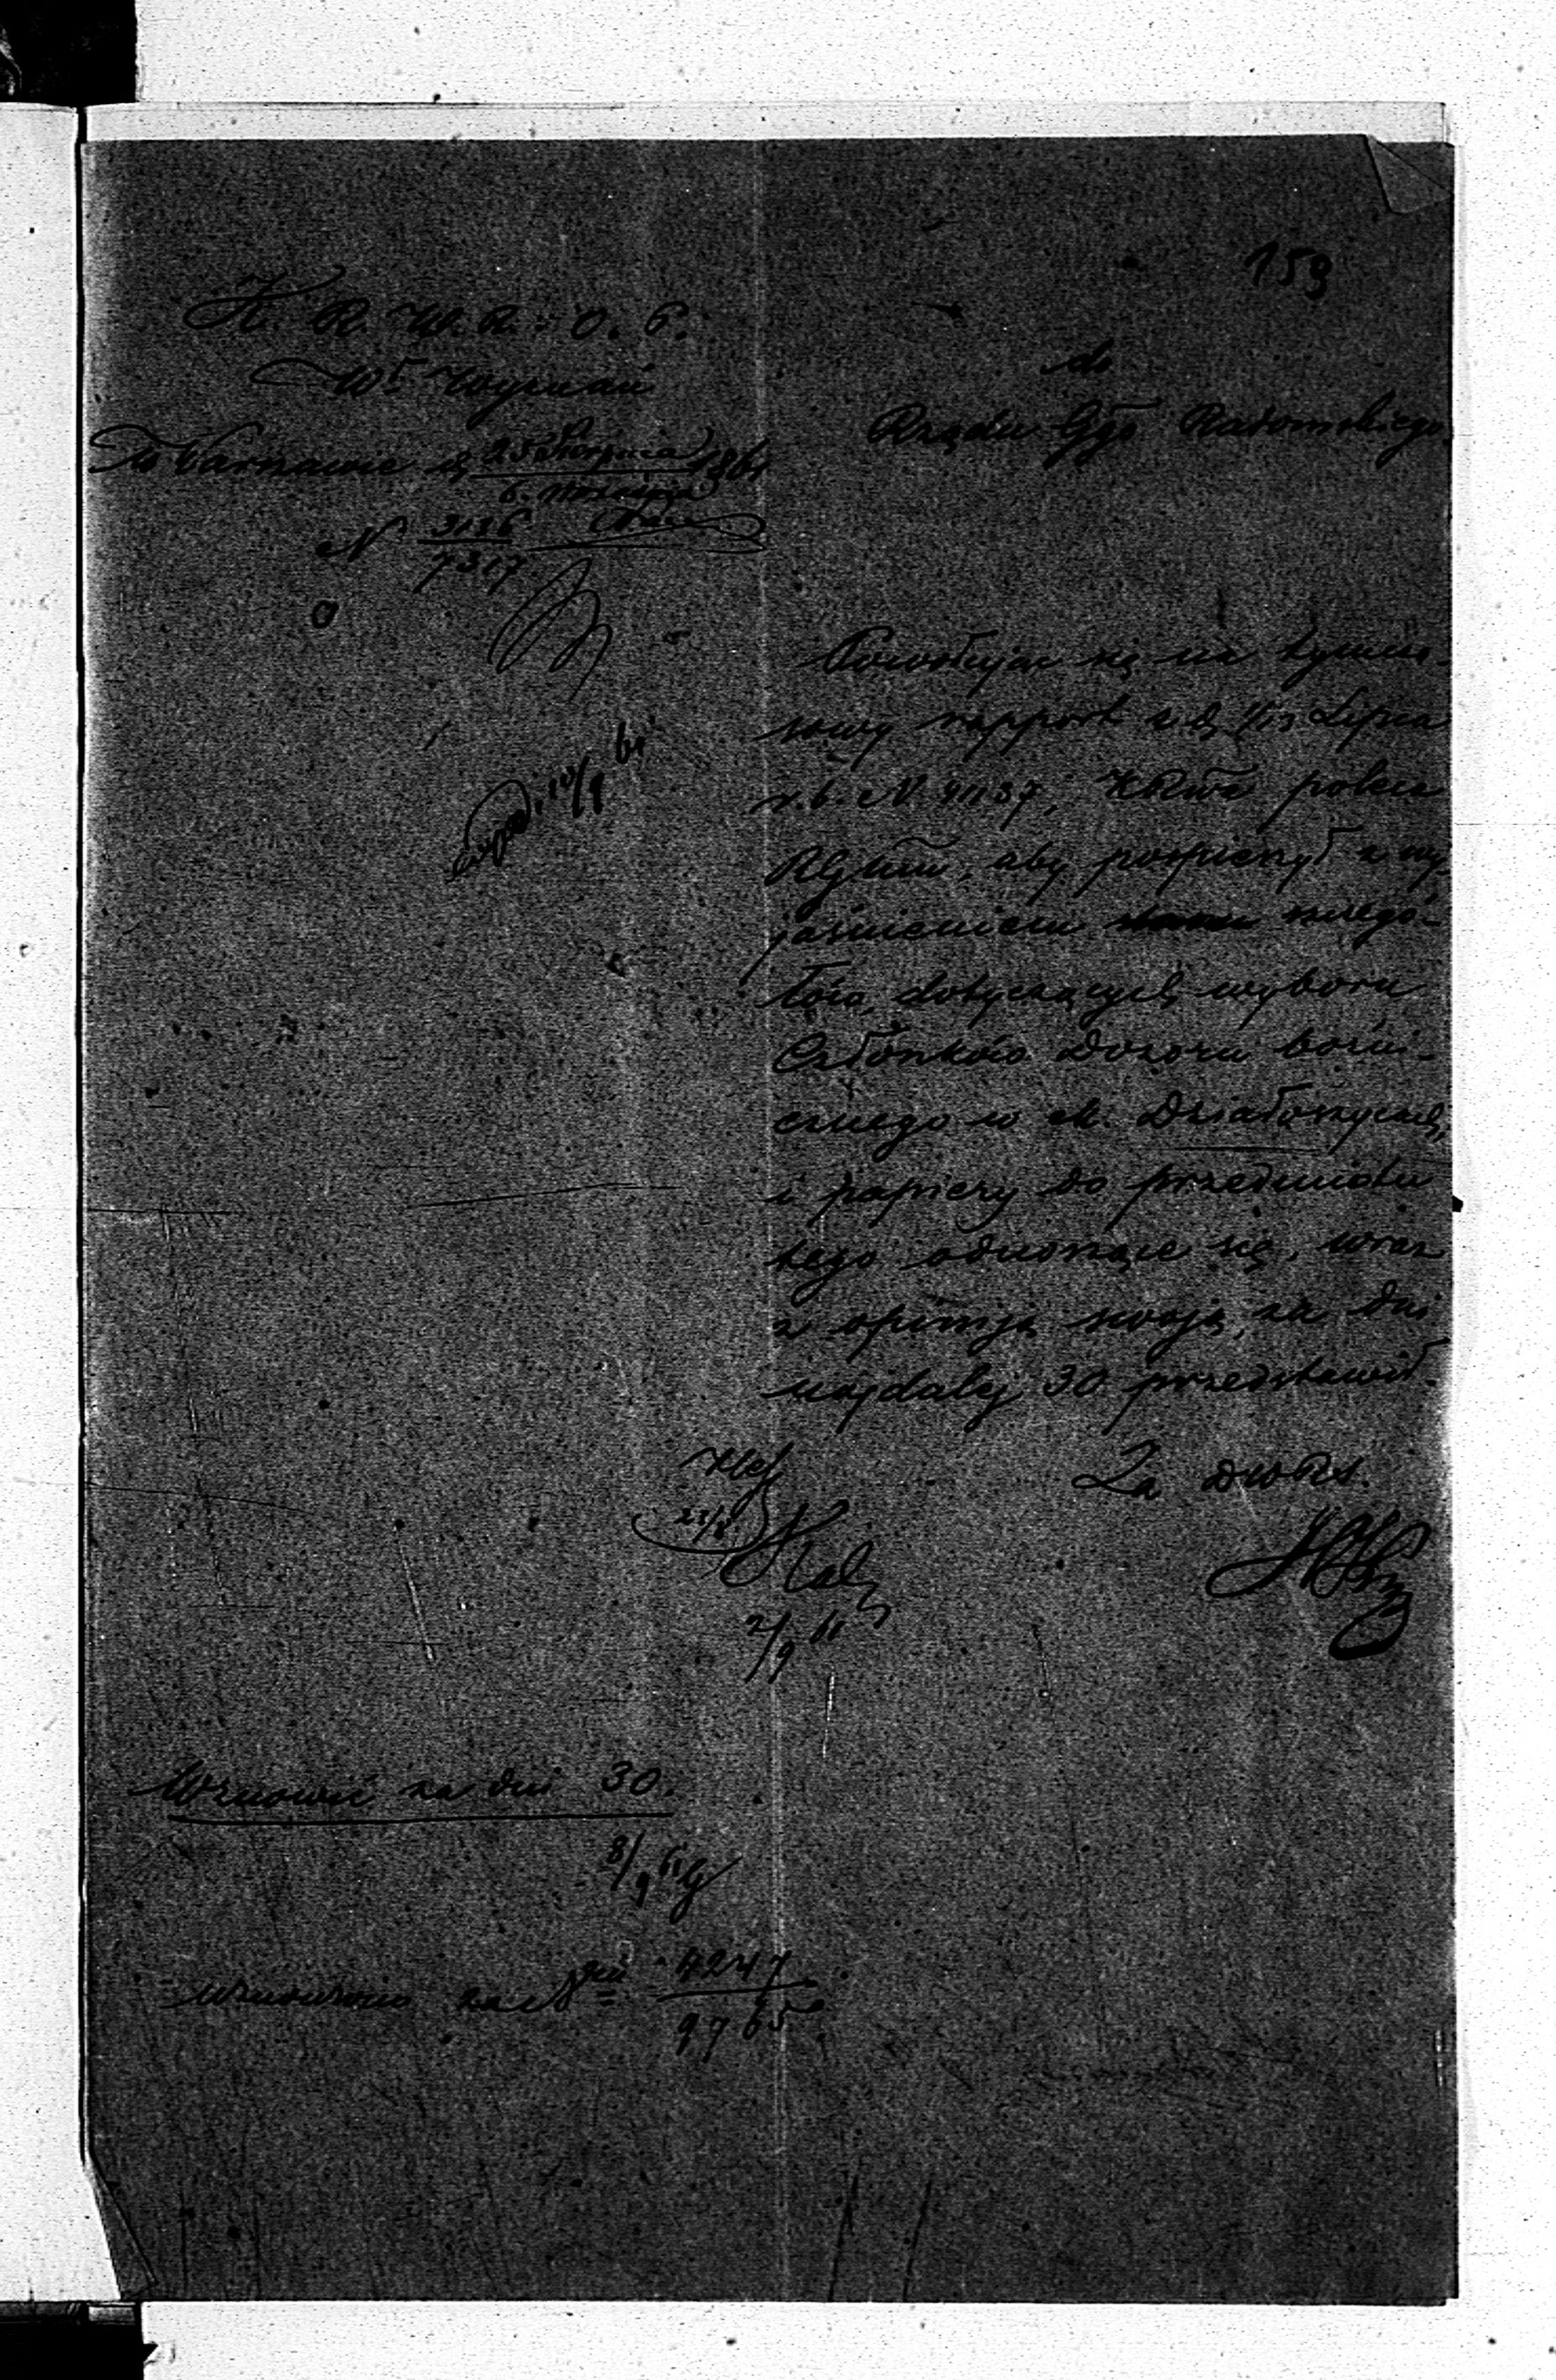 159
K. R. W. R. i O. P.
Wł Wyznań
w Warszawie d. 25 Sierpnia 1861
6. Września
N 3136
7317
do
Rządu Ggo Radomskiego
Powołując się na tymcza-
sowy rapport z d. 1/13 Lipca
r. b. N 41137, KRwa poleca
RGmu, aby pospieszył z wy-
jaśnieniem szczegó-
łów, dotyczących wyboru
Członków Dozoru bożni-
cznego w m. Działoszycach,
i papiery do przedmiotu
tego odnoszące się, wraz
z opinją swoją, za dni
najdalej 30 przedstawił.
Za
23/8
2/9 61
10/9 61
Wznowić za dni 30.
8/9 61
Wznowiono za N 4247
9765